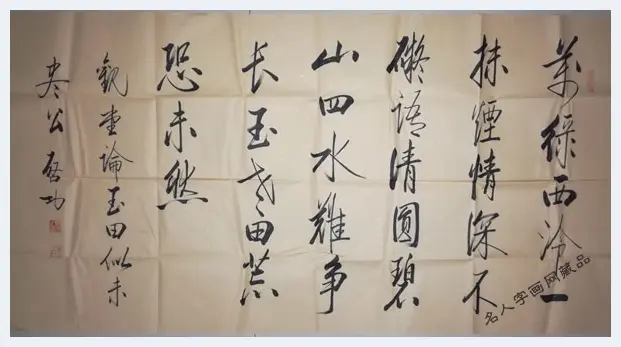 萬綠西泠一
抹煙情深不
礙語清圓碧
山四水難爭
长玉老田荒
恐未然
觀堂論玉田似未
尽公 啓功
名人字画网藏品